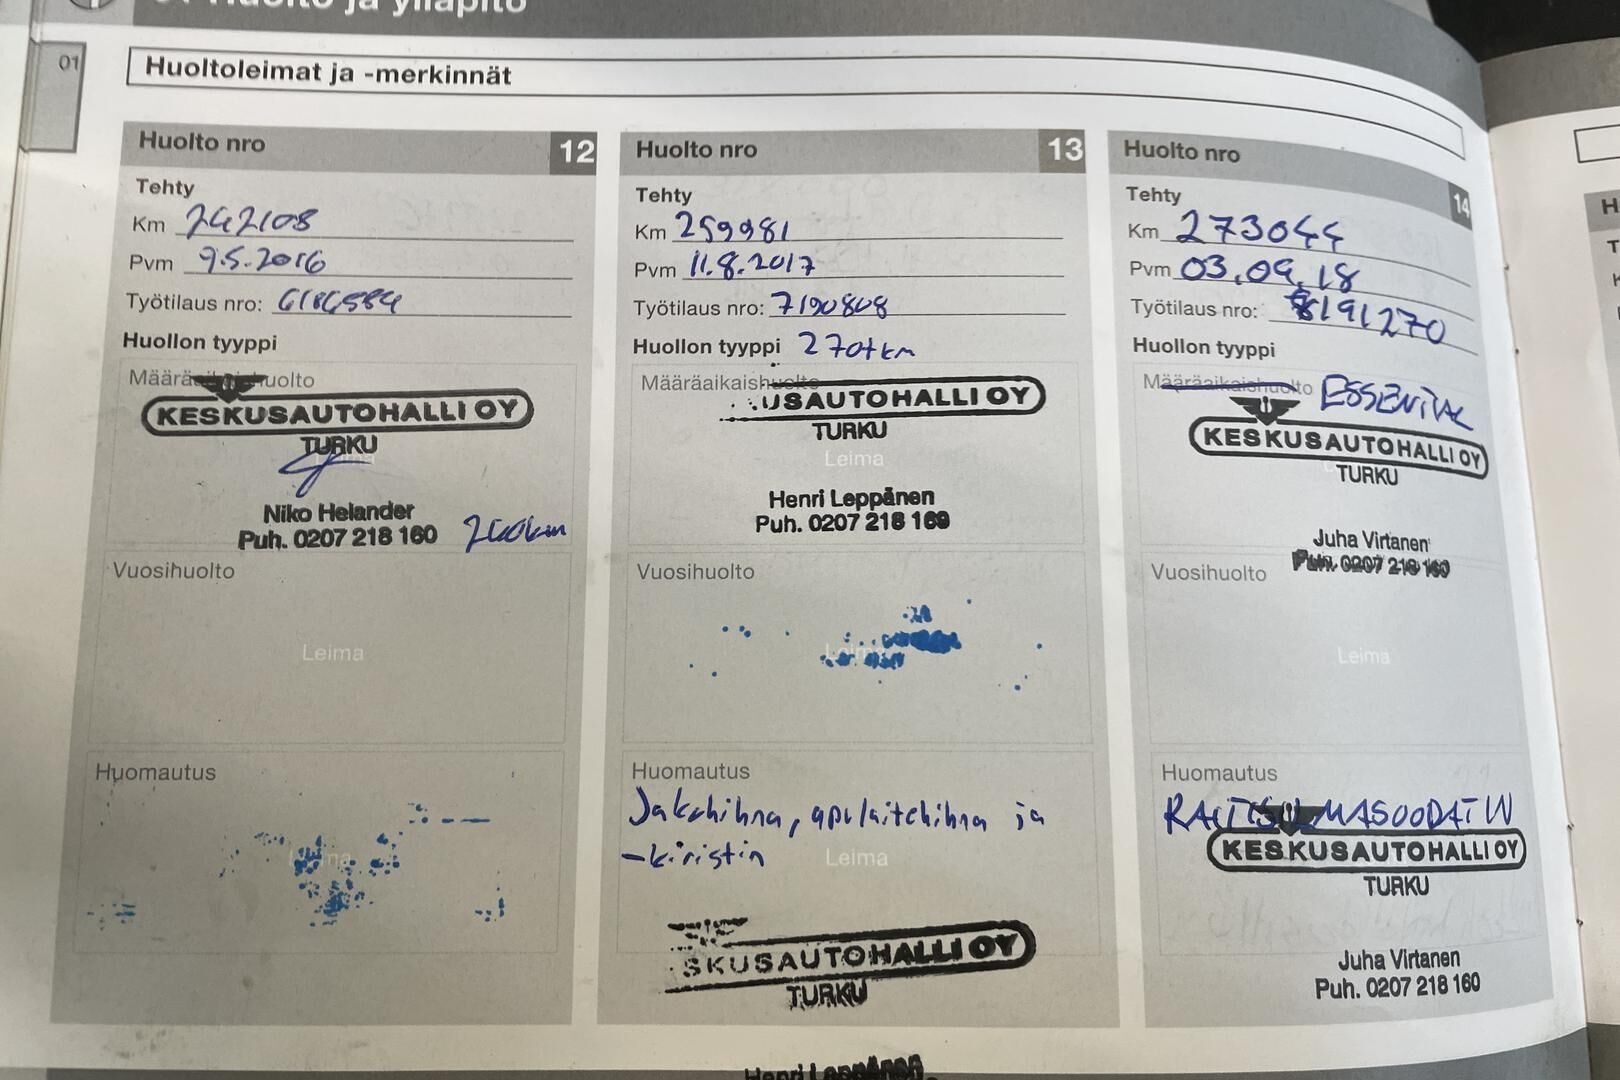 01 Huolto ja ylläpito
01
Huoltoleimat ja -merkinnät
Huolto nro 12
Tehty
Km 242108
Pvm 9.5.2016
Työtilaus nro: 6186584
Huollon tyyppi
Määräaikaishuolto
KESKUSAUTOHALLI OY
TURKU
Leima
Niko Helander
Puh. 0207 218 160 240tkm
Vuosihuolto
Leima
Huomautus
Leima
Huolto nro 13
Tehty
Km 259981
Pvm 11.8.2017
Työtilaus nro: 7190808
Huollon tyyppi 270tkm
Määräaikaishuolto
USAUTOHALLI OY
TURKU
Leima
Henri Leppänen
Puh. 0207 218 160
Vuosihuolto
Leima
Huomautus
Jakohihna, apulaitehihna ja
-kiristin
Leima
SKUSAUTOHALLI OY
TURKU
Henri Leppänen
Huolto nro 14
Tehty
Km 273044
Pvm 03.09.18
Työtilaus nro: 8191270
Huollon tyyppi
Määräaikaishuolto ESSENTIAL
KESKUSAUTOHALLI OY
TURKU
Juha Virtanen
Puh. 0207 218 160
Vuosihuolto
Leima
Huomautus
RAITISILMASUODATIN
KESKUSAUTOHALLI OY
TURKU
Juha Virtanen
Puh. 0207 218 160